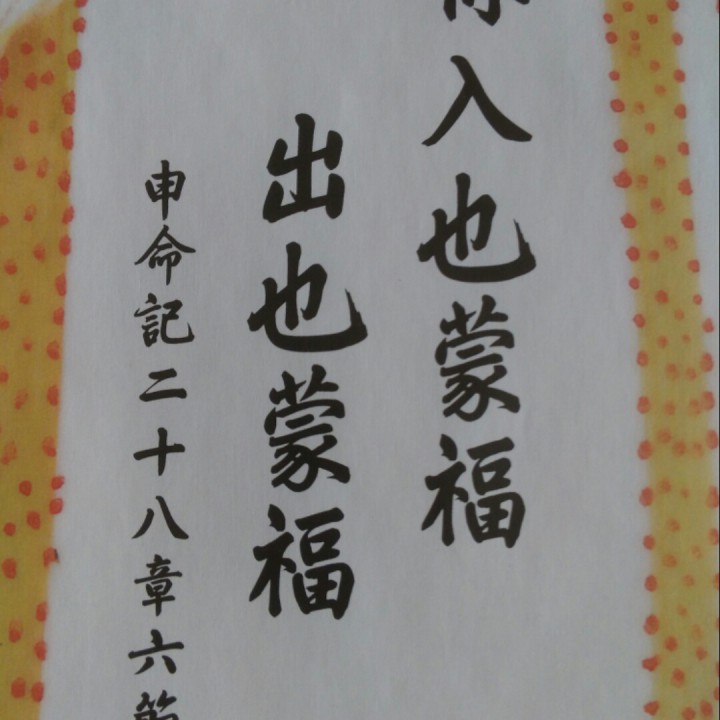 你入也蒙福
出也蒙福
申命記二十八章六節